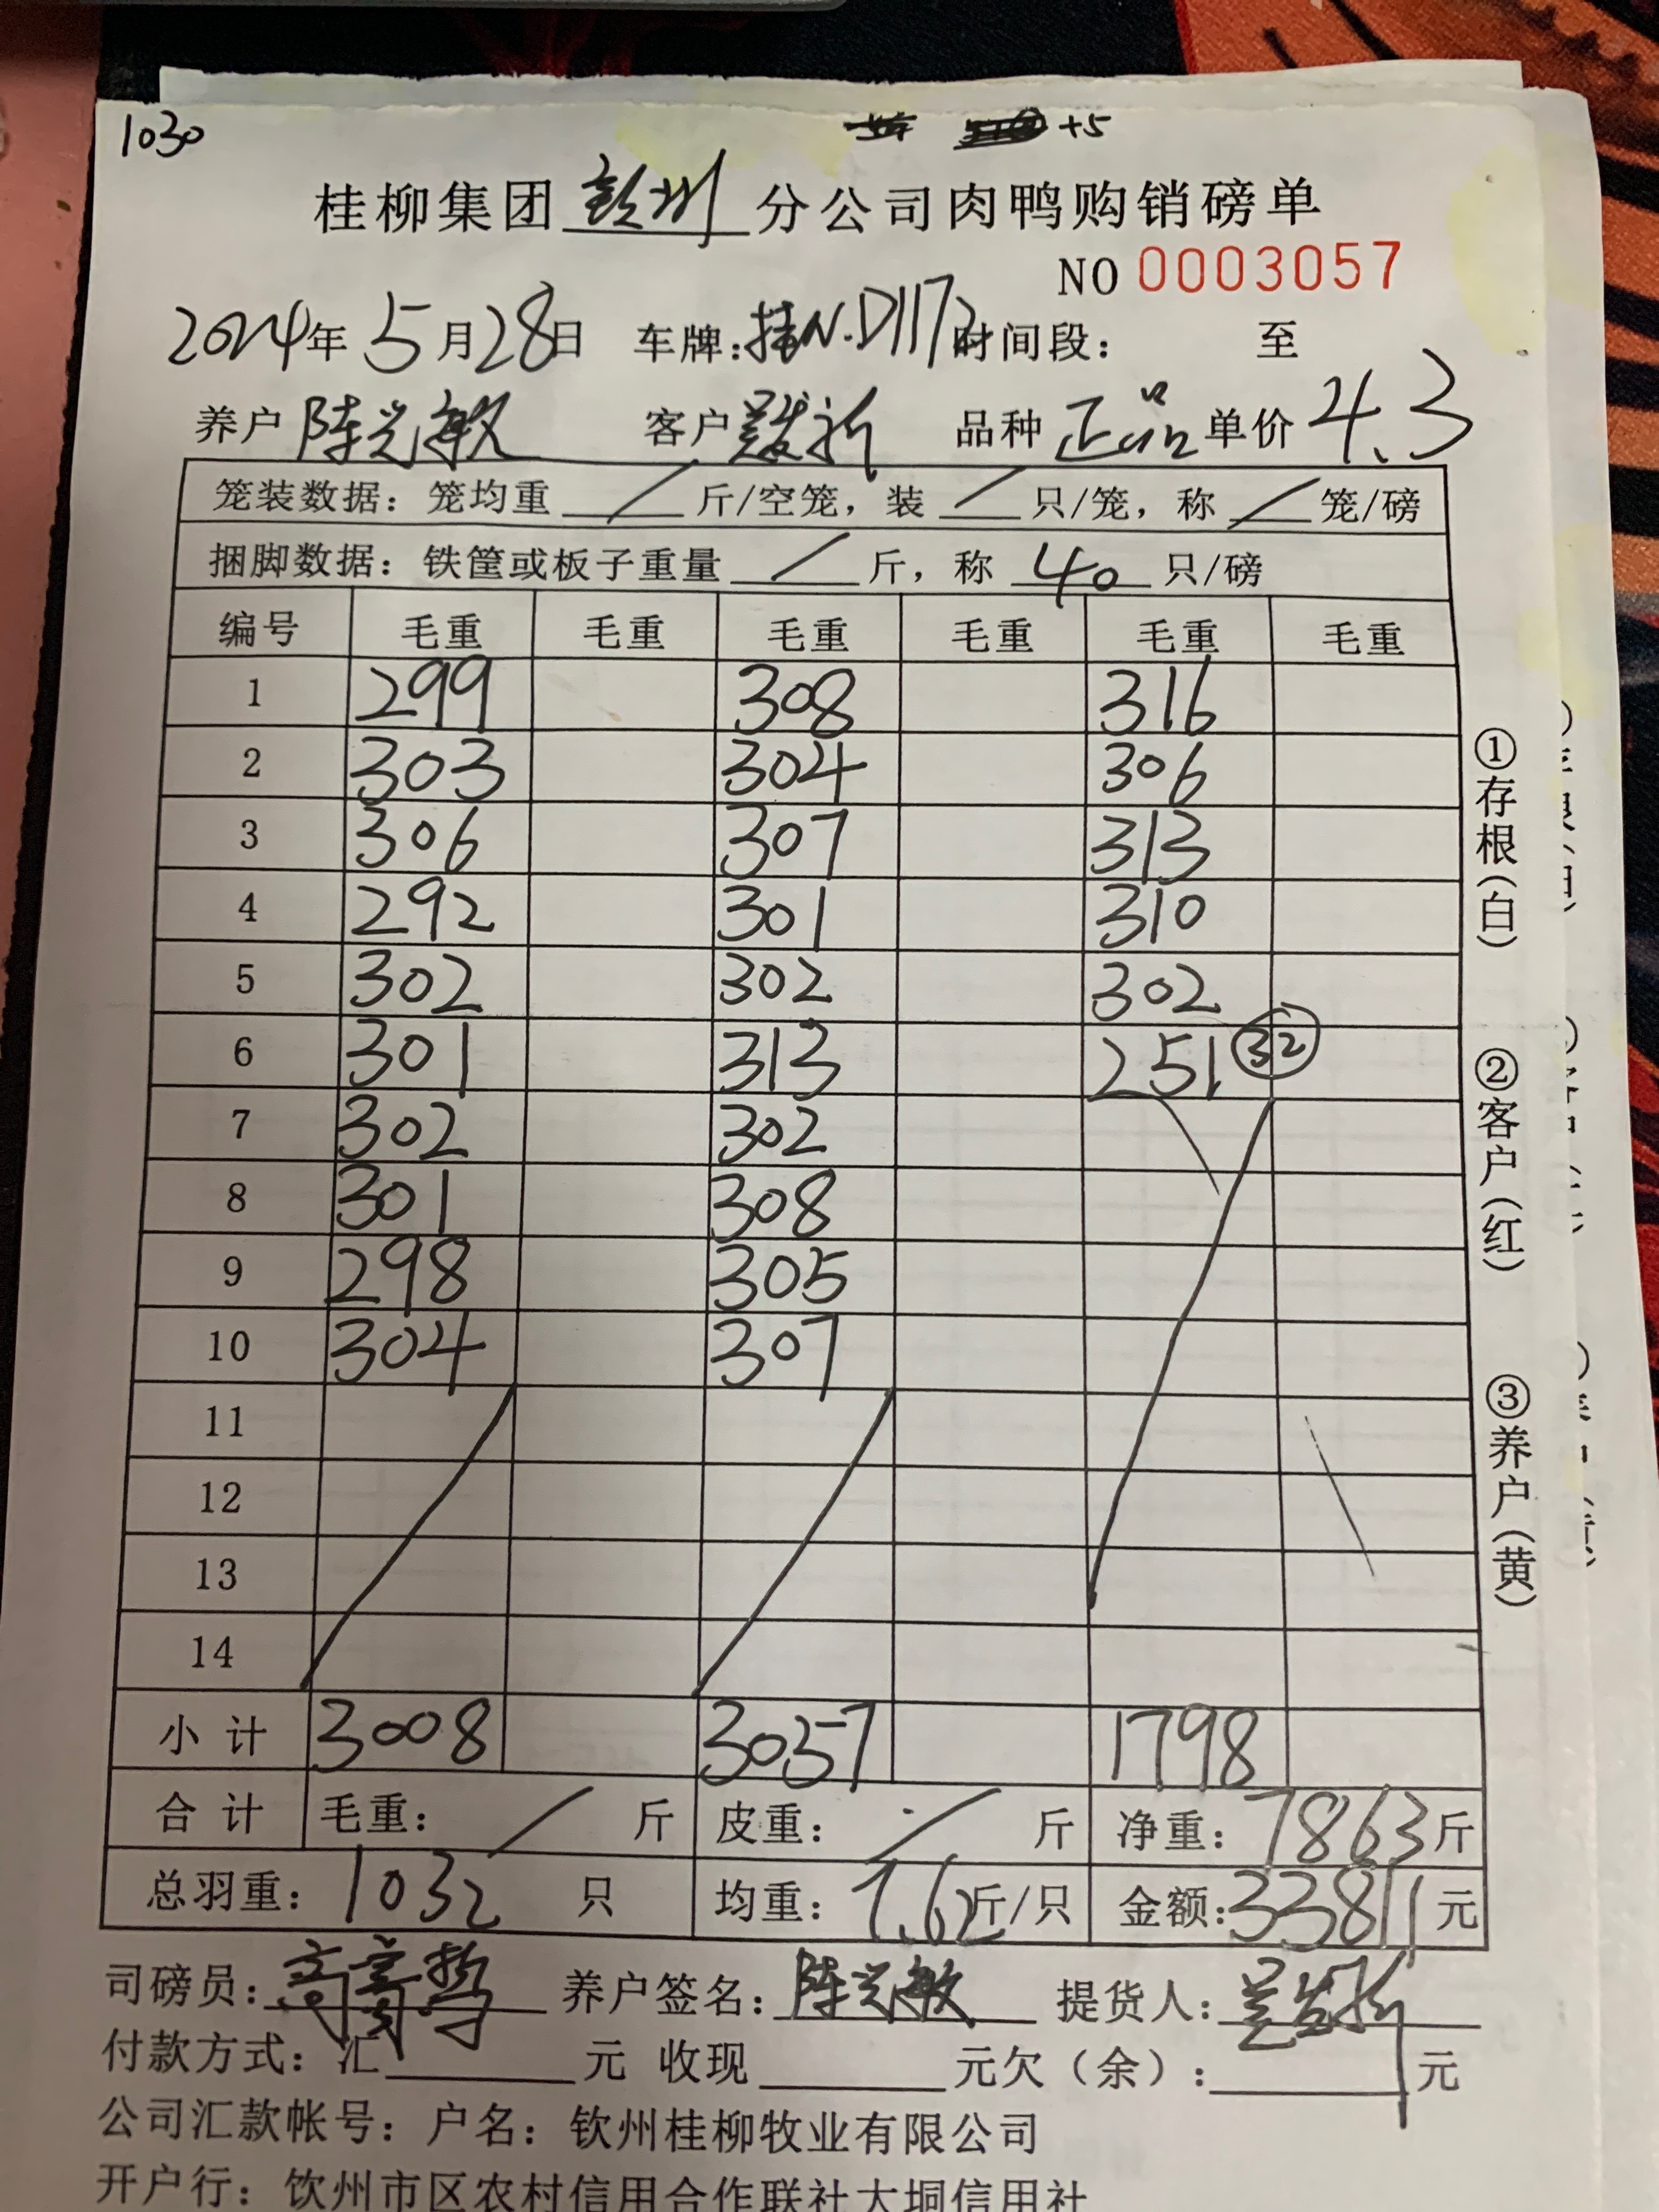 1030 +5
桂柳集团钦州分公司肉鸭购销磅单
NO 0003057
2024年5月28日 车牌:桂N.D1172 时间段: 至
养户 陈兴敏 客户 品种 正品 单价 4.3
笼装数据:笼均重 / 斤/空笼,装 / 只/笼,称 / 笼/磅
捆脚数据:铁筐或板子重量 / 斤,称 40 只/磅
编号 毛重 毛重 毛重 毛重 毛重 毛重
1 299 308 316
2 303 304 306
3 306 307 313
4 292 301 310
5 302 302 302
6 301 313 251 32
7 302 302
8 301 308
9 298 305
10 304 307
11
12
13
14
小计 3008 3057 1798
合计 毛重: / 斤 皮重: / 斤 净重:7863斤
总羽重:1032 只 均重:7.62斤/只 金额:33811元
司磅员: 养户签名:陈兴敏 提货人:
付款方式:汇 元 收现 元欠(余): 元
公司汇款帐号:户名:钦州桂柳牧业有限公司
开户行:钦州市区农村信用合作联社大垌信用社
①存根(白)
②客户(红)
③养户(黄)